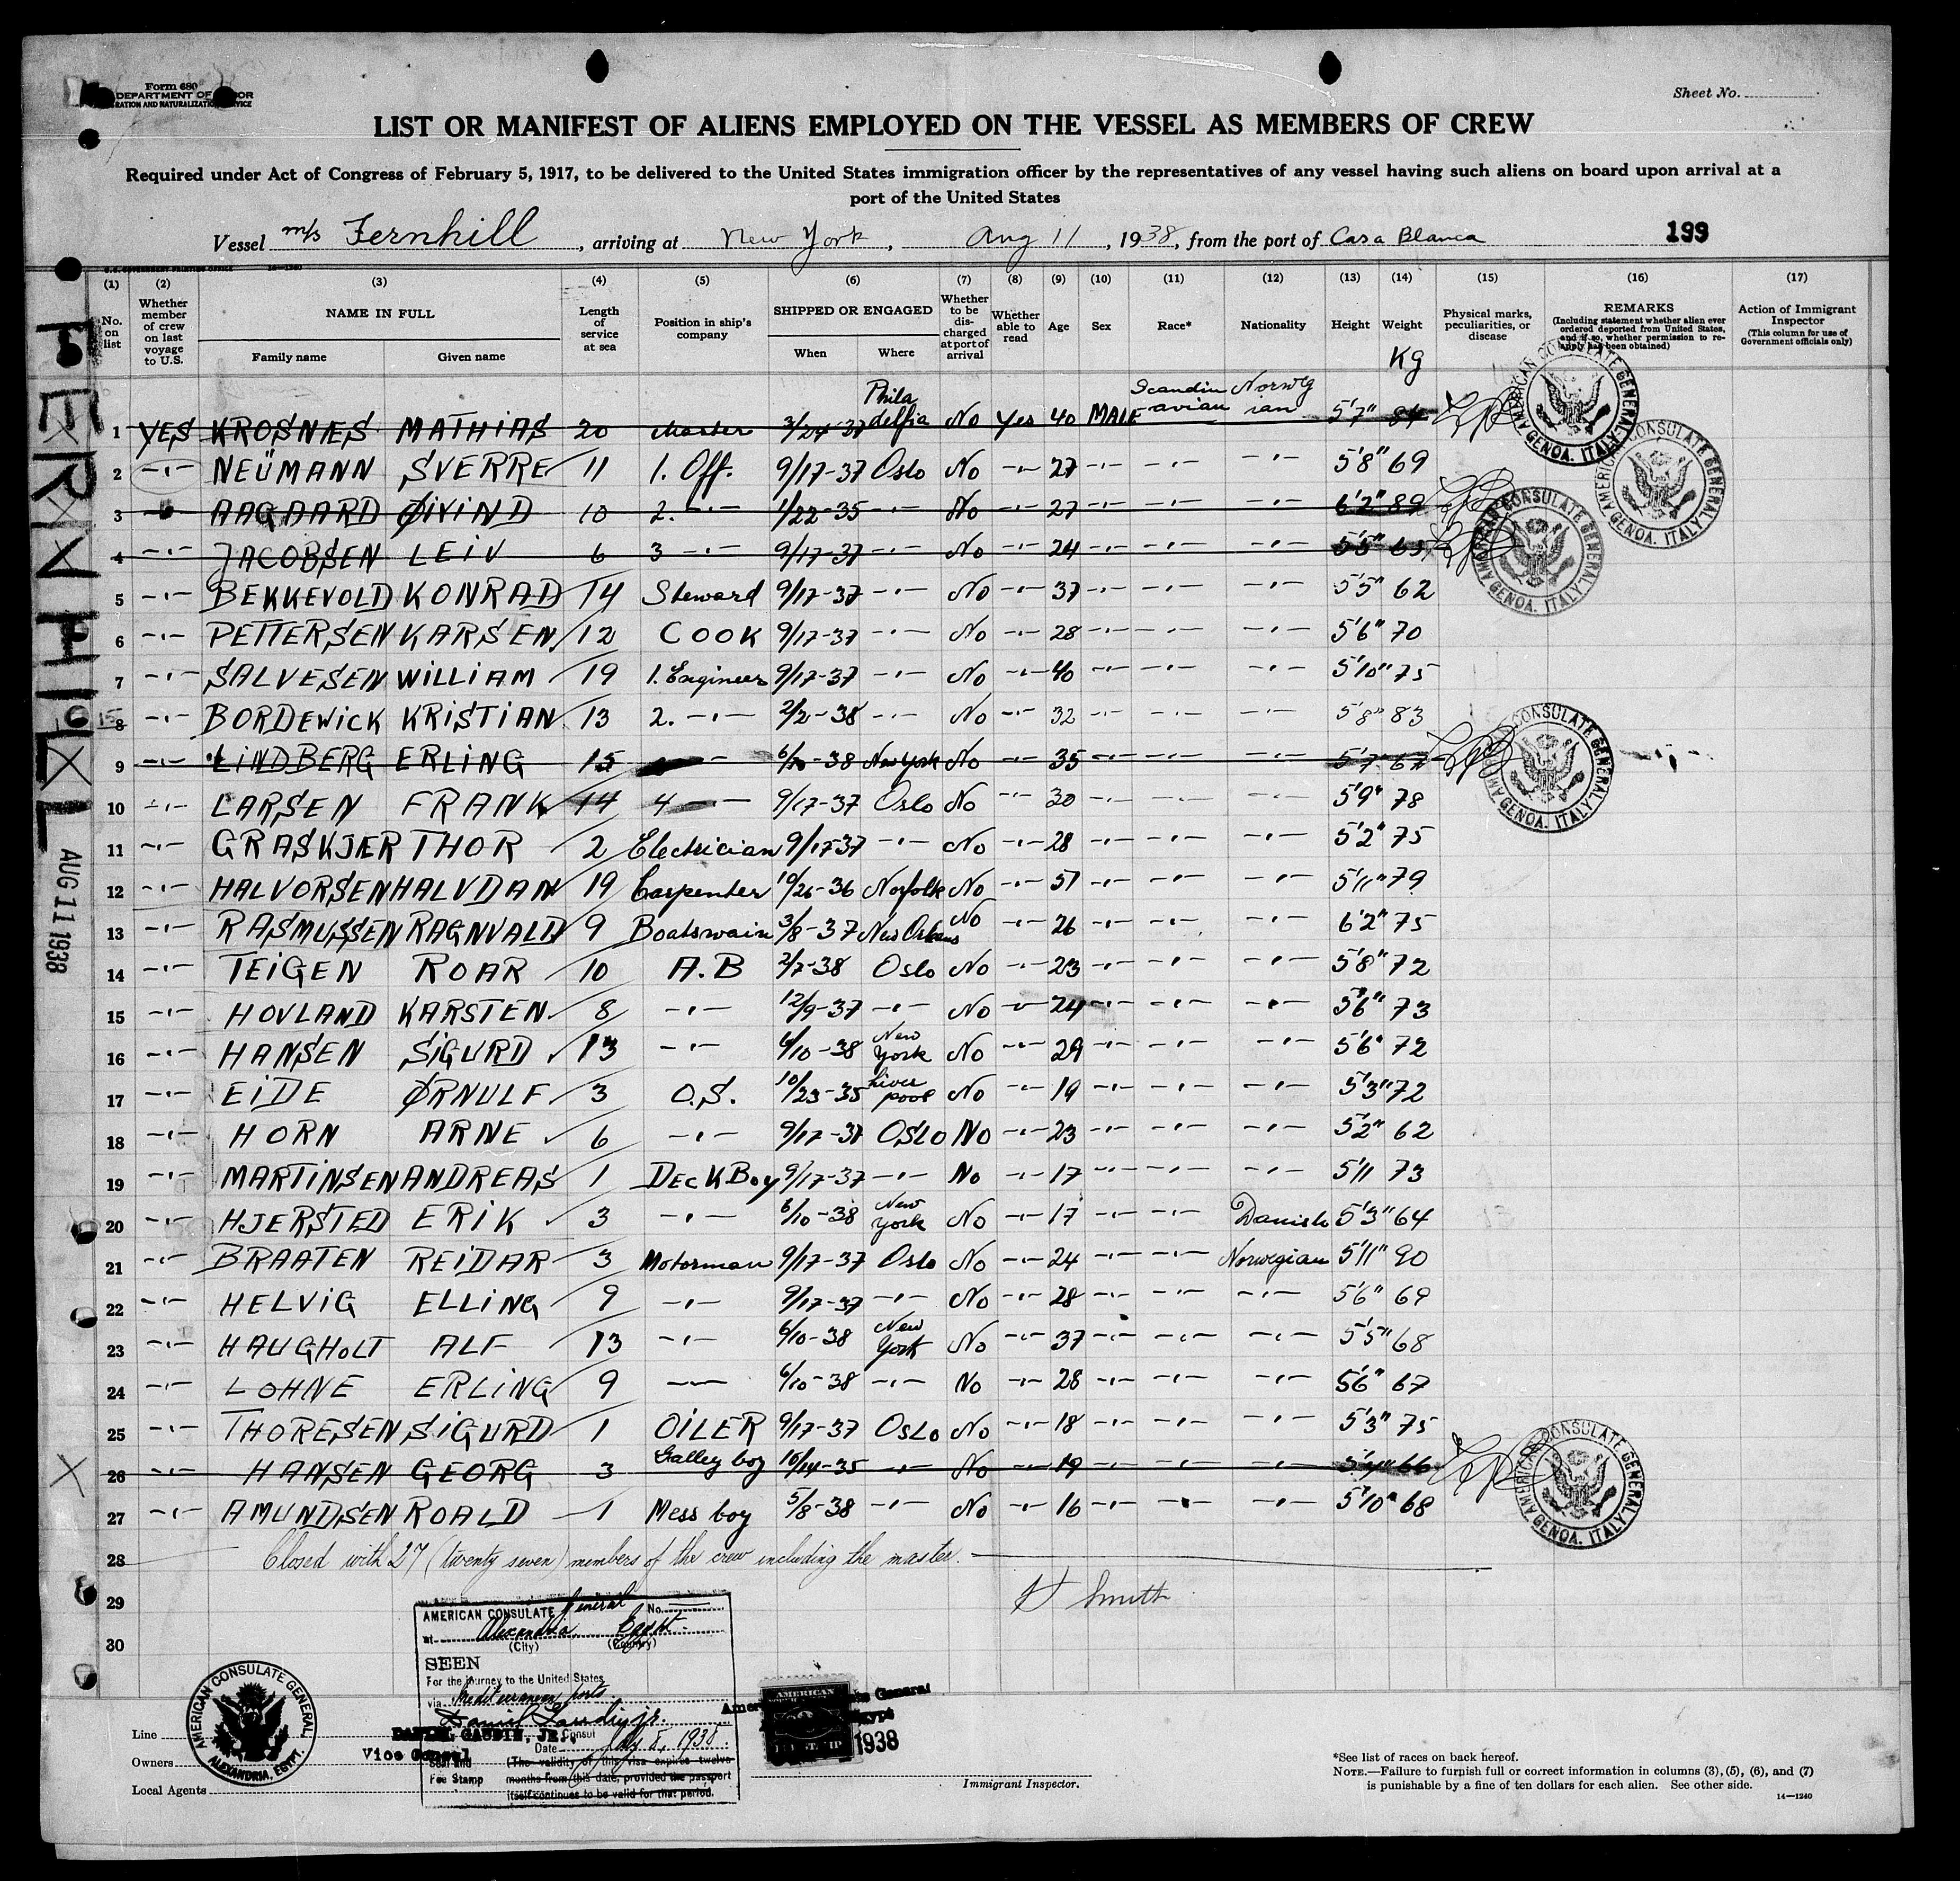 Form 680
DEPARTMENT OF LABOR
IMMIGRATION AND NATURALIZATION SERVICE
Sheet No.
LIST OR MANIFEST OF ALIENS EMPLOYED ON THE VESSEL AS MEMBERS OF CREW
Required under Act of Congress of February 5, 1917, to be delivered to the United States immigration officer by the representatives of any vessel having such aliens on board upon arrival at a
port of the United States
Vessel m/s Fernhill, arriving at New York, Aug 11, 1938, from the port of Casa Blanca 199
U.S. GOVERNMENT PRINTING OFFICE 14-1240
(1) (2) (3) (4) (5) (6) (7) (8) (9) (10) (11) (12) (13) (14) (15) (16) (17)
No. on list
Whether member of crew on last voyage to U.S.
NAME IN FULL
Family name Given name
Length of service at sea
Position in ship's company
SHIPPED OR ENGAGED
When Where
Whether to be discharged at port of arrival
Whether able to read
Age
Sex
Race*
Nationality
Height
Weight
Kg
Physical marks, peculiarities, or disease
REMARKS
(Including statement whether alien ever ordered deported from United States, and if so, whether permission to reapply has been obtained)
Action of Immigrant Inspector
(This column for use of Government officials only)
1 YES KROSNÆS MATHIAS 20 Master 3/24-37 Philadelfia No Yes 40 MALE Scandinavian Norwegian 5'7" 84
2 -"- NEÜMANN SVERRE 11 1. Off. 9/17-37 Oslo No -"- 27 -"- -"- -"- 5'8" 69
3 AAGAARD ØIVIND 10 2. -"- 1/22-35 -"- No -"- 27 -"- -"- -"- 6'2" 89
4 -"- JACOBSEN LEIV 6 3 -"- 9/17-37 -"- No -"- 24 -"- -"- -"- 5'5" 63
5 -"- BEKKEVOLD KONRAD 14 Steward 9/17-37 -"- No -"- 37 -"- -"- -"- 5'5" 62
6 -"- PETTERSEN KARSEN 12 COOK 9/17-37 -"- No -"- 28 -"- -"- -"- 5'6" 70
7 -"- SALVESEN WILLIAM 19 1. Engineer 9/17-37 -"- No -"- 40 -"- -"- -"- 5'10" 75
8 -"- BORDEWICK KRISTIAN 13 2. -"- 2/2-38 -"- No -"- 32 -"- -"- -"- 5'8" 83
9 -"- LINDBERG ERLING 15 -"- 6/10-38 New York No -"- 35 -"- -"- -"- 5'7" 67
10 -"- LARSEN FRANK 14 4 -"- 9/17-37 Oslo No -"- 30 -"- -"- -"- 5'9" 78
11 -"- GRASKJER THOR 2 Electrician 9/17-37 -"- No -"- 28 -"- -"- -"- 5'2" 75
12 -"- HALVORSEN HALVDAN 19 Carpenter 10/26-36 Norfolk No -"- 51 -"- -"- -"- 5'11" 79
13 -"- RASMUSSEN RAGNVALD 9 Boatswain 3/8-37 New Orleans No -"- 26 -"- -"- -"- 6'2" 75
14 -"- TEIGEN ROAR 10 A.B 2/7-38 Oslo No -"- 23 -"- -"- -"- 5'8" 72
15 -"- HOVLAND KARSTEN 8 -"- 12/9-37 -"- No -"- 24 -"- -"- -"- 5'6" 73
16 -"- HANSEN SIGURD 13 -"- 6/10-38 New York No -"- 29 -"- -"- -"- 5'6" 72
17 -"- EIDE ØRNULF 3 O.S. 10/23-35 Liverpool No -"- 19 -"- -"- -"- 5'3" 72
18 -"- HORN ARNE 6 -"- 9/17-37 OSLO No -"- 23 -"- -"- -"- 5'2" 62
19 -"- MARTINSEN ANDREAS 1 Deck Boy 9/17-37 -"- No -"- 17 -"- -"- -"- 5'11 73
20 -"- HJERSTED ERIK 3 -"- 6/10-38 New York No -"- 17 -"- -"- Danish 5'3" 64
21 -"- BRAATEN REIDAR 3 Motorman 9/17-37 Oslo No -"- 24 -"- -"- Norwegian 5'11" 90
22 -"- HELVIG ELLING 9 -"- 9/17-37 -"- No -"- 28 -"- -"- -"- 5'6" 69
23 -"- HAUGHOLT ALF 13 -"- 6/10-38 New York No -"- 37 -"- -"- -"- 5'5" 68
24 -"- LOHNE ERLING 9 -"- 6/10-38 -"- No -"- 28 -"- -"- -"- 5'6" 67
25 -"- THORESEN SIGURD 1 OILER 9/17-37 Oslo No -"- 18 -"- -"- -"- 5'3" 75
26 -"- HANSEN GEORG 3 Galley boy 10/14-35 -"- No -"- 19 -"- -"- -"- 5'4" 66
27 -"- AMUNDSEN ROALD 1 Mess boy 5/8-38 -"- No -"- 16 -"- -"- -"- 5'10" 68
28 Closed with 27 (twenty seven) members of the crew including the master.
29 Smith
30
FERNHILL
AUG 11 1938
AMERICAN CONSULATE GENERAL GENOA, ITALY
AMERICAN CONSULATE GENERAL GENOA, ITALY
AMERICAN CONSULATE GENERAL GENOA, ITALY
AMERICAN CONSULATE GENERAL GENOA, ITALY
AMERICAN CONSULATE GENERAL GENOA, ITALY
AMERICAN CONSULATE General No.
at Alexandria Egypt
(City) (Country)
SEEN
For the journey to the United States
via Mediterranean ports
Daniel Gaudin jr.
DANIEL GAUDIN, JR., Consul
Vice Consul
Date July 8, 1938
Seal and Fee Stamp
(The validity of this visa expires twelve
months from this date, provided the passport
itself continues to be valid for that period.
AMERICAN CONSULATE GENERAL ALEXANDRIA, EGYPT.
AMERICAN
1938
Line
Owners
Local Agents
Immigrant Inspector.
*See list of races on back hereof.
NOTE.—Failure to furnish full or correct information in columns (3), (5), (6), and (7)
is punishable by a fine of ten dollars for each alien. See other side.
14—1240